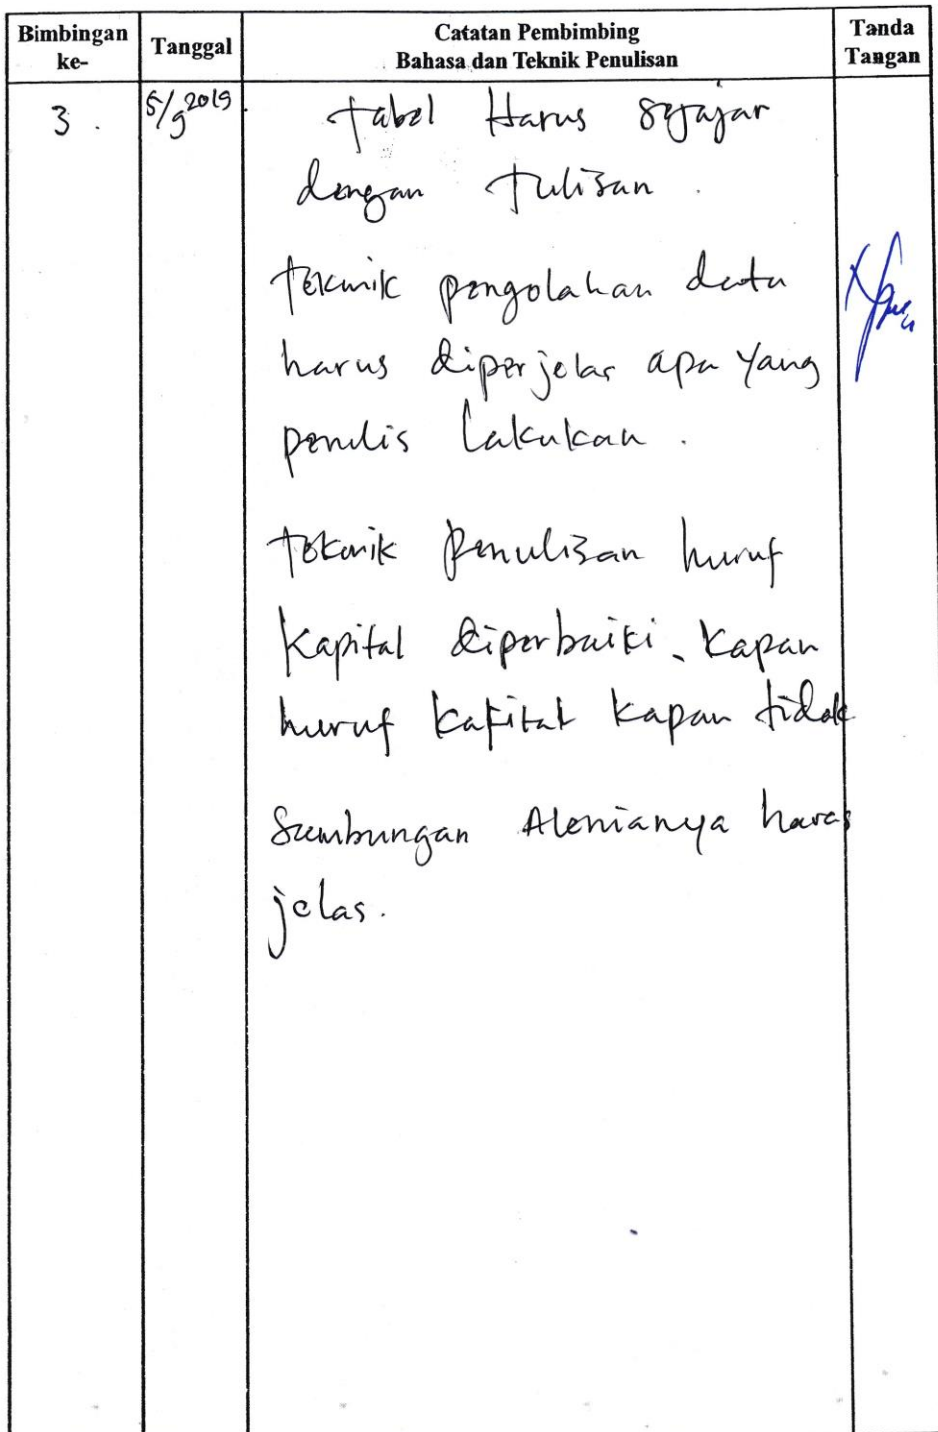 Bimbingan ke-
Tanggal
Catatan Pembimbing
Bahasa dan Teknik Penulisan
Tanda Tangan
3. 5/9 2019. tabel Harus sejajar
dengan tulisan.
teknik pengolahan data
harus diperjelas apa yang
penulis lakukan.
teknik penulisan huruf
kapital diperbaiki. kapan
huruf kapital kapan tidak
Sambungan Alenianya harus
jelas.